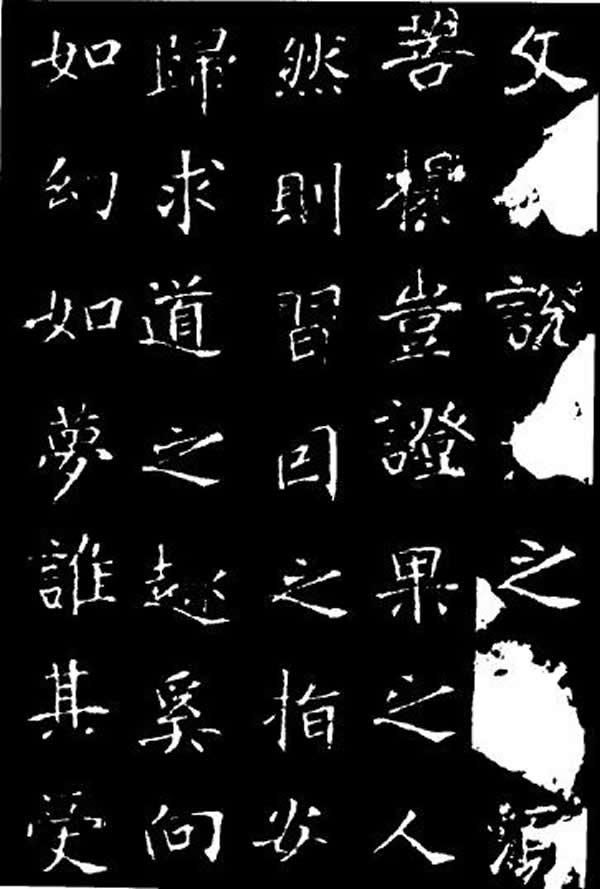 文說之
善豈證果之人
然則習因之指安
歸求道之趣奚向
如幻如夢誰其受